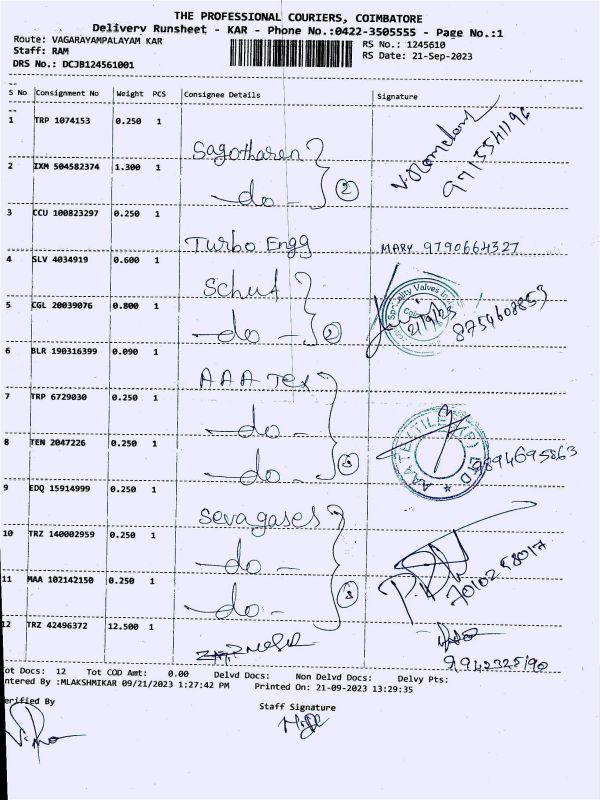 THE PROFESSIONAL COURIERS, COIMBATORE
Delivery Runsheet - KAR - Phone No.:0422-3505555 - Page No.:1
Route: VAGARAYAMPALAYAM KAR
RS No.: 1245610
Staff: RAM
RS Date: 21-Sep-2023
DRS No.: DCJB124561001
S No Consignment No Weight PCS Consignee Details Signature
1 TRP 1074153 0.250 1
Sagotharen
9715541196
2 IXM 504582374 1.300 1
-do- 2
3 CCU 100823297 0.250 1
Turbo Engg MARY 9790664327
4 SLV 4034919 0.600 1
Schuf
5 CGL 20039076 0.800 1
-do- 2
21/9/23
8754608853
6 BLR 190316399 0.090 1
AAA Tex
7 TRP 6729030 0.250 1
-do-
8 TEN 2047226 0.250 1
-do- 3
9 EDQ 15914999 0.250 1
Sevagases
10 TRZ 140002959 0.250 1
-do-
11 MAA 102142150 0.250 1
-do- 3
7010258017
12 TRZ 42496372 12.500 1
9942325190
Tot Docs: 12 Tot COD Amt: 0.00 Delvd Docs: Non Delvd Docs: Delvy Pts:
Entered By :MLAKSHMIKAR 09/21/2023 1:27:42 PM Printed On: 21-09-2023 13:29:35
Verified By
Staff Signature